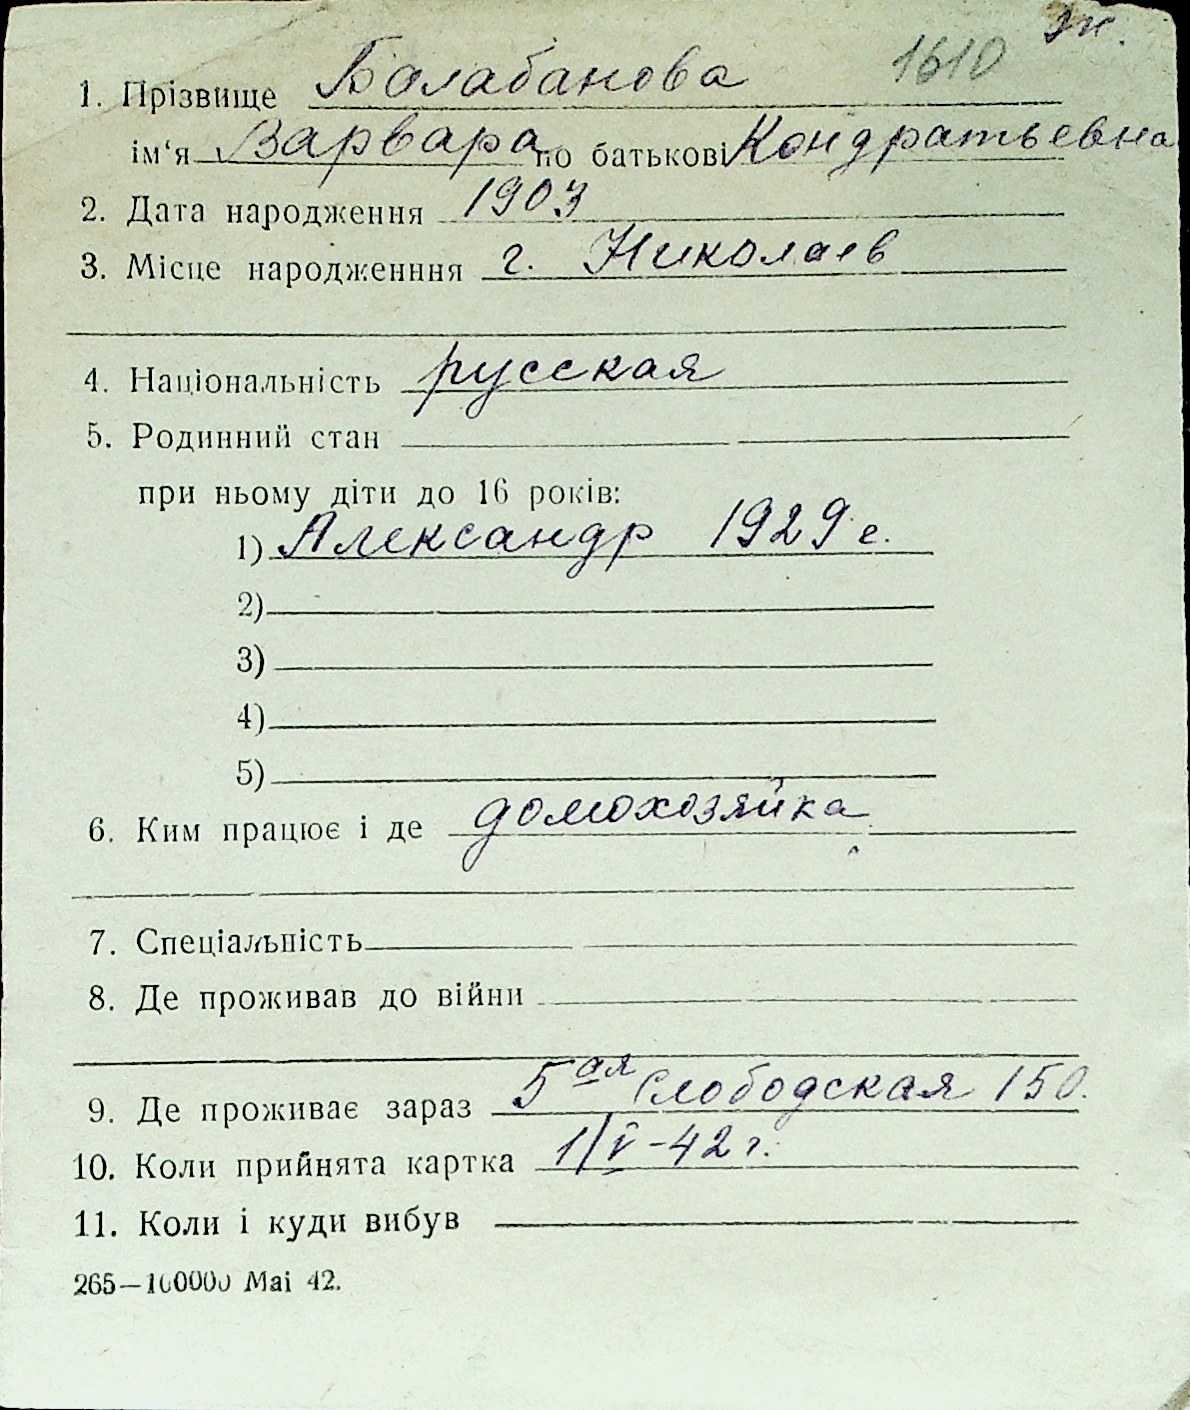 1610 эк.
1. Прізвище Балабанова
ім‘я Варвара по батькові Кондратьевна
2. Дата народження 1903
3. Місце народженння г. Николаев
4. Національність русская
5. Родинний стан
при ньому діти до 16 років:
1) Александр 1929 г.
2)
3)
4)
5)
6. Ким працює і де домохозяйка
7. Спеціальність
8. Де проживав до війни
9. Де проживає зараз 5ая Слободская 150.
10. Коли прийнята картка 1/V-42 г.
11. Коли і куди вибув
265—100000 Mai 42.